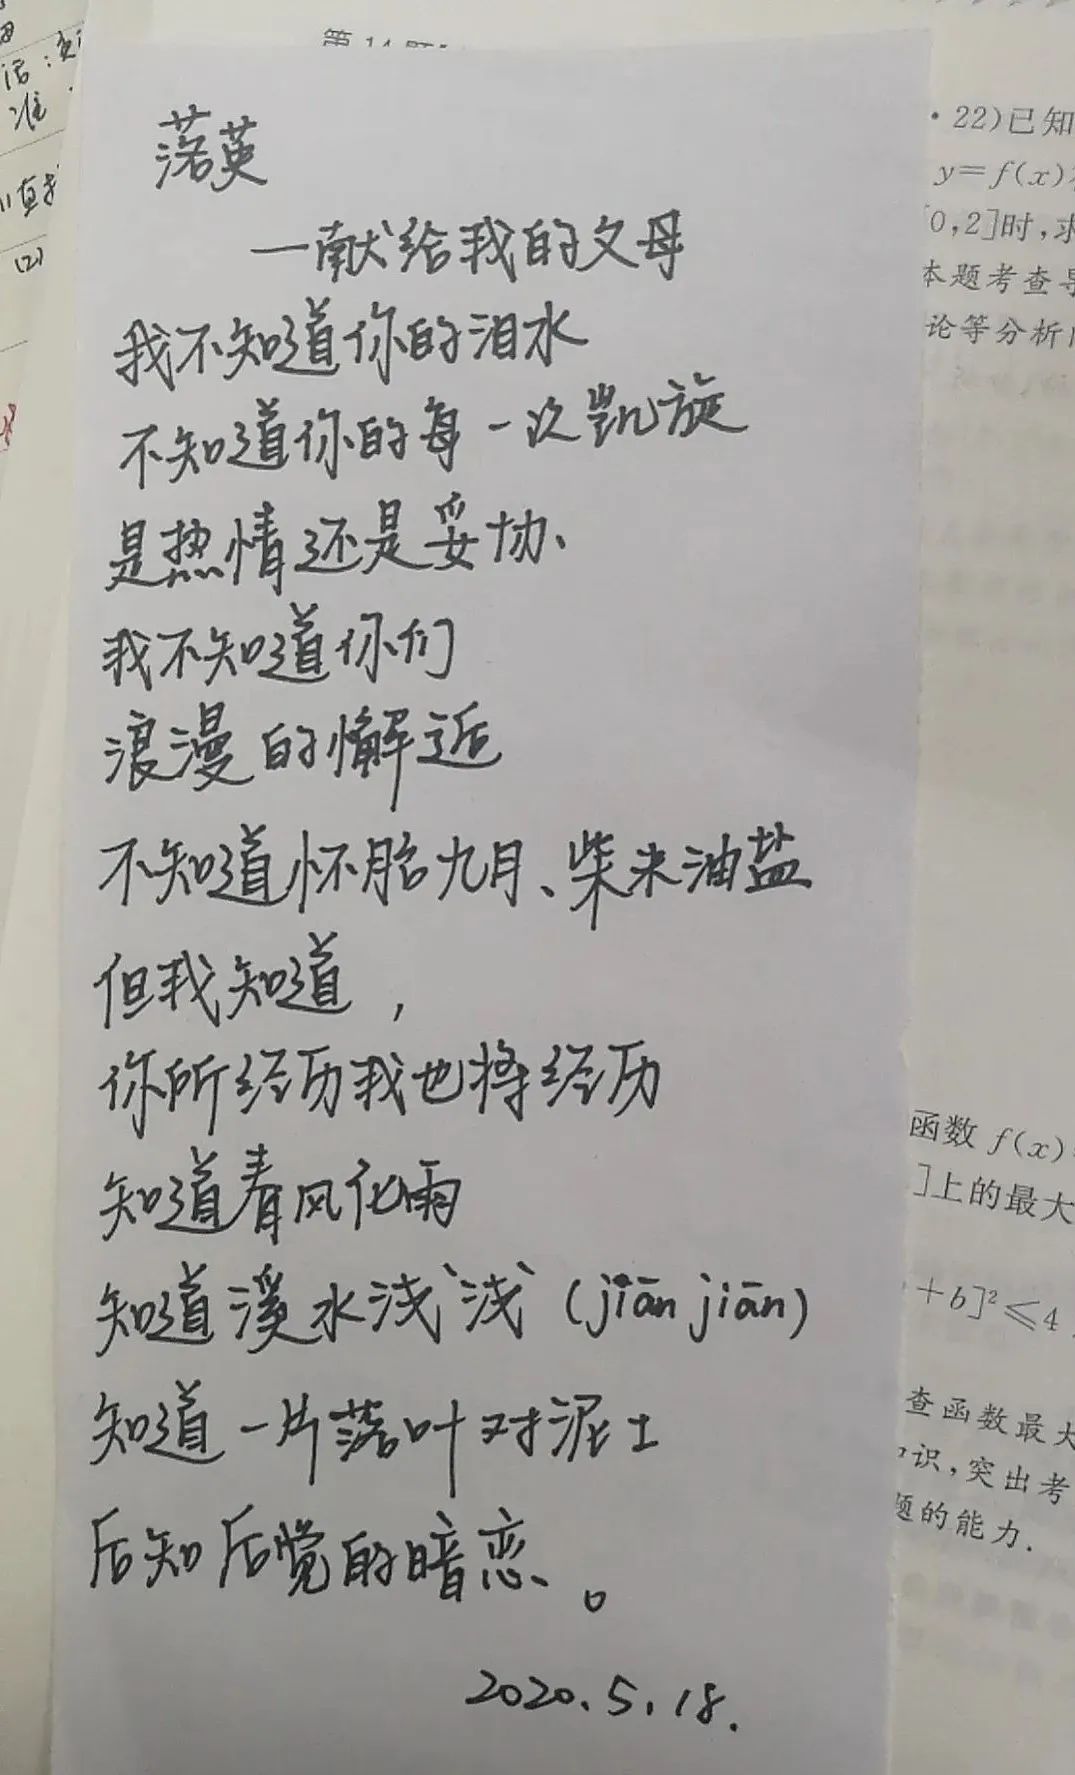 落英
一献给我的父母
我不知道你的泪水
不知道你的每一次凯旋
是热情还是妥协、
我不知道你们
浪漫的懈逅
不知道怀胎九月、柴米油盐
但我知道，
你所经历我也将经历
知道春风化雨
知道溪水浅浅(jiān jiān)
知道一片落叶对泥土
后知后觉的暗恋。
2020.5.18.
·22)已知
y=f(x)
[0,2]时,求
本题考查导
论等分析
函数 f(x)
]上的最大
+b]²≤4
查函数最大
识,突出考
题的能力.